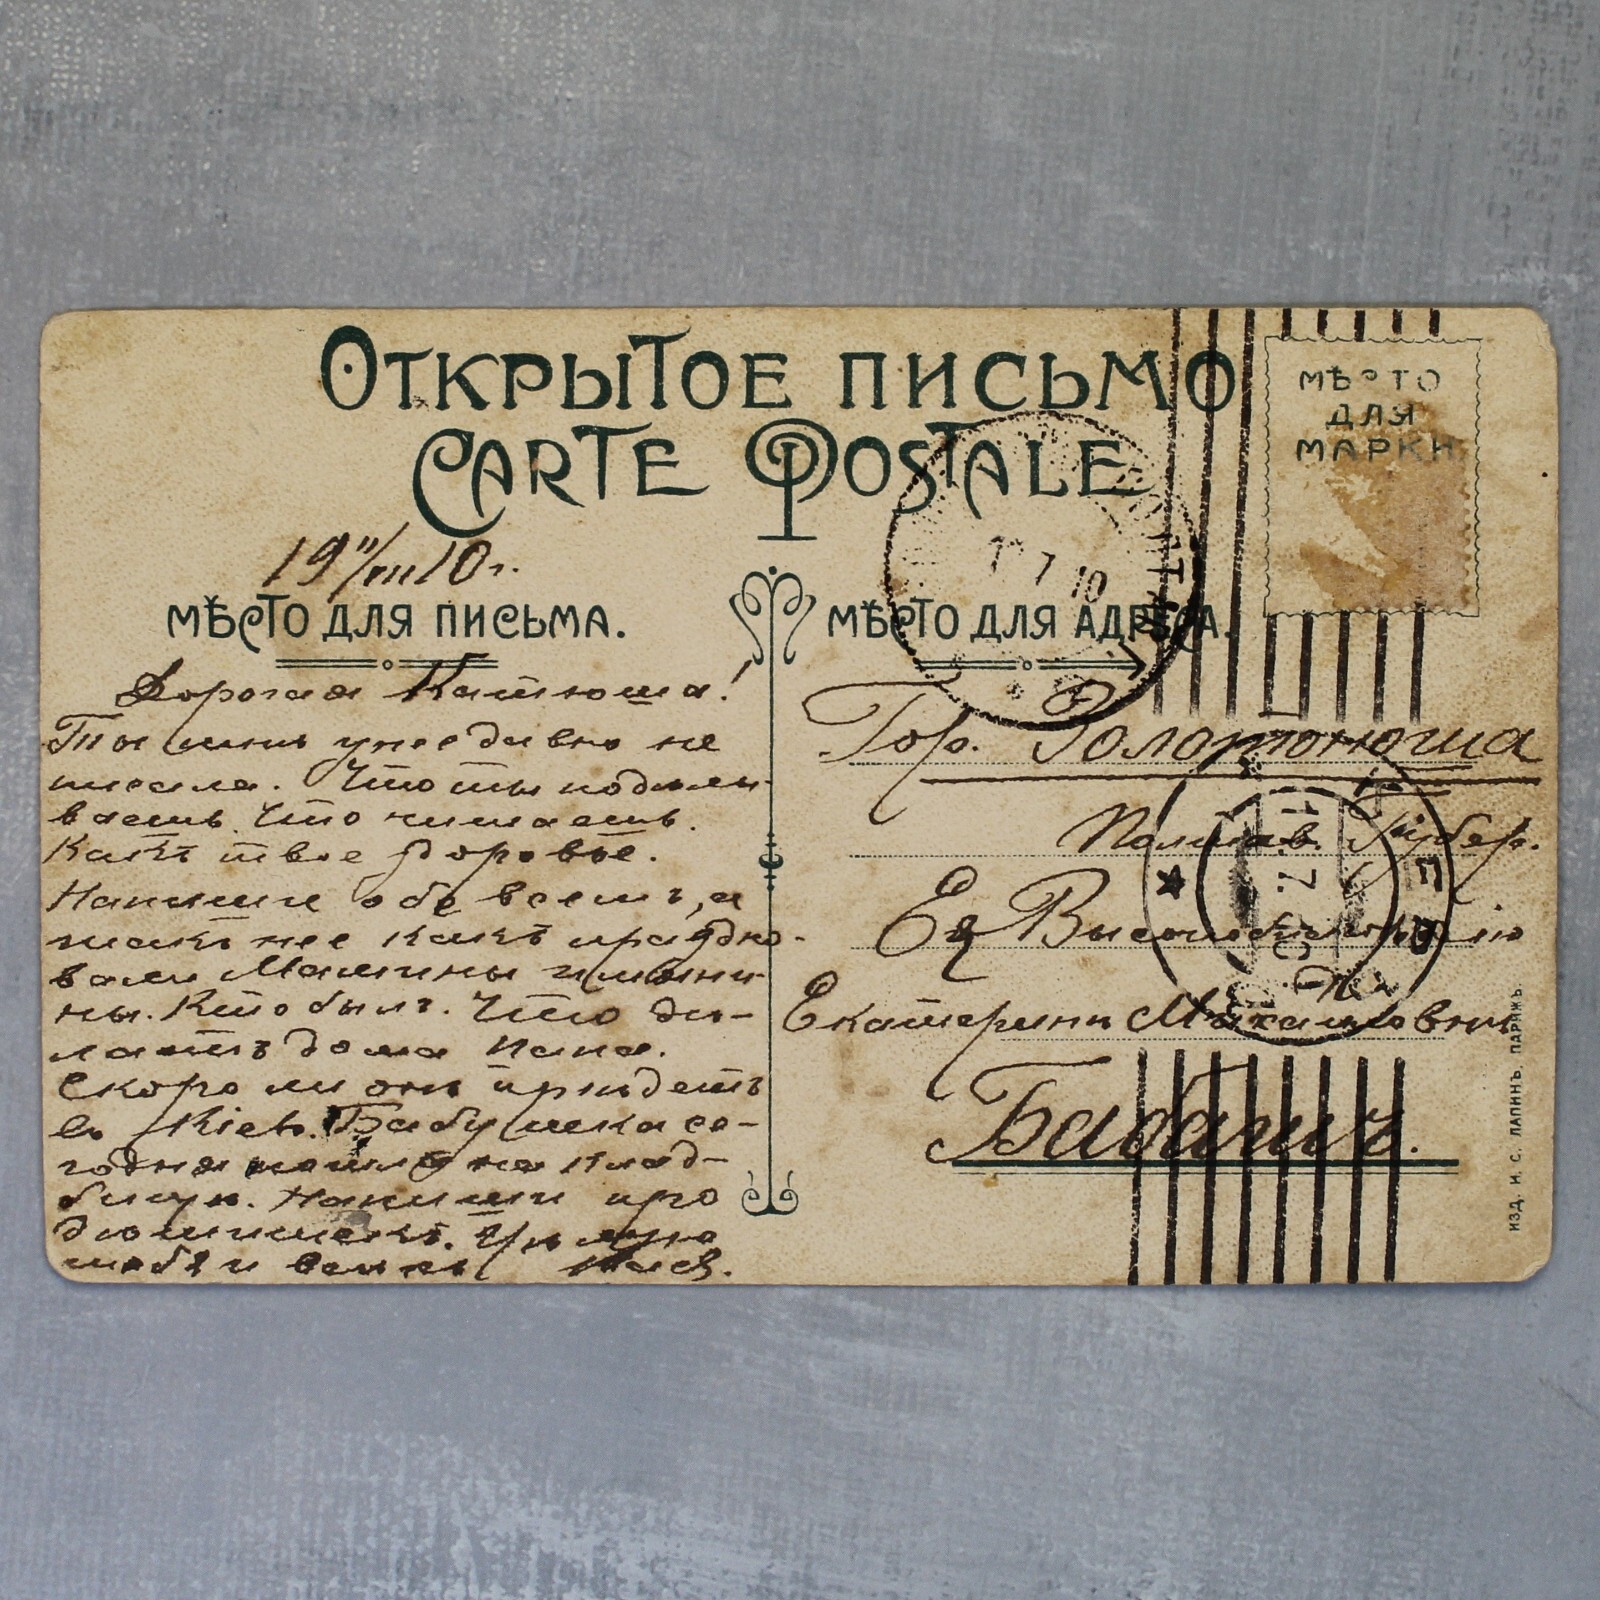 Открытое письмо
Carte Postale
МѢСТО
ДЛЯ
МАРКИ
19 11/VII 10 г.
7 10
Мѣсто для письма.
Мѣсто для адреса.
Дорогая Катюша!
Ты мнѣ уже давно не
писала. Что ты подѣлы-
ваешь. Что читаешь.
Какъ твое здоровье.
Напиши обо всемъ, а
также какъ праздно-
вали Мамины имени-
ны. Кто былъ. Что дѣ-
лаетъ дома Папа.
Скоро ли онъ пріѣдетъ
въ Кіевъ. Бабушка се-
годня пошла на клад-
бище. Напиши про
Цѣлую
тебя и всѣхъ
Гор. Золотоноша
Полтав. Губер.
Ея Высокоблагородію
Екатеринѣ Михайловнѣ
Бабаничъ.
ИЗД. И. С. ЛАПИНЪ. ПАРИЖЪ.